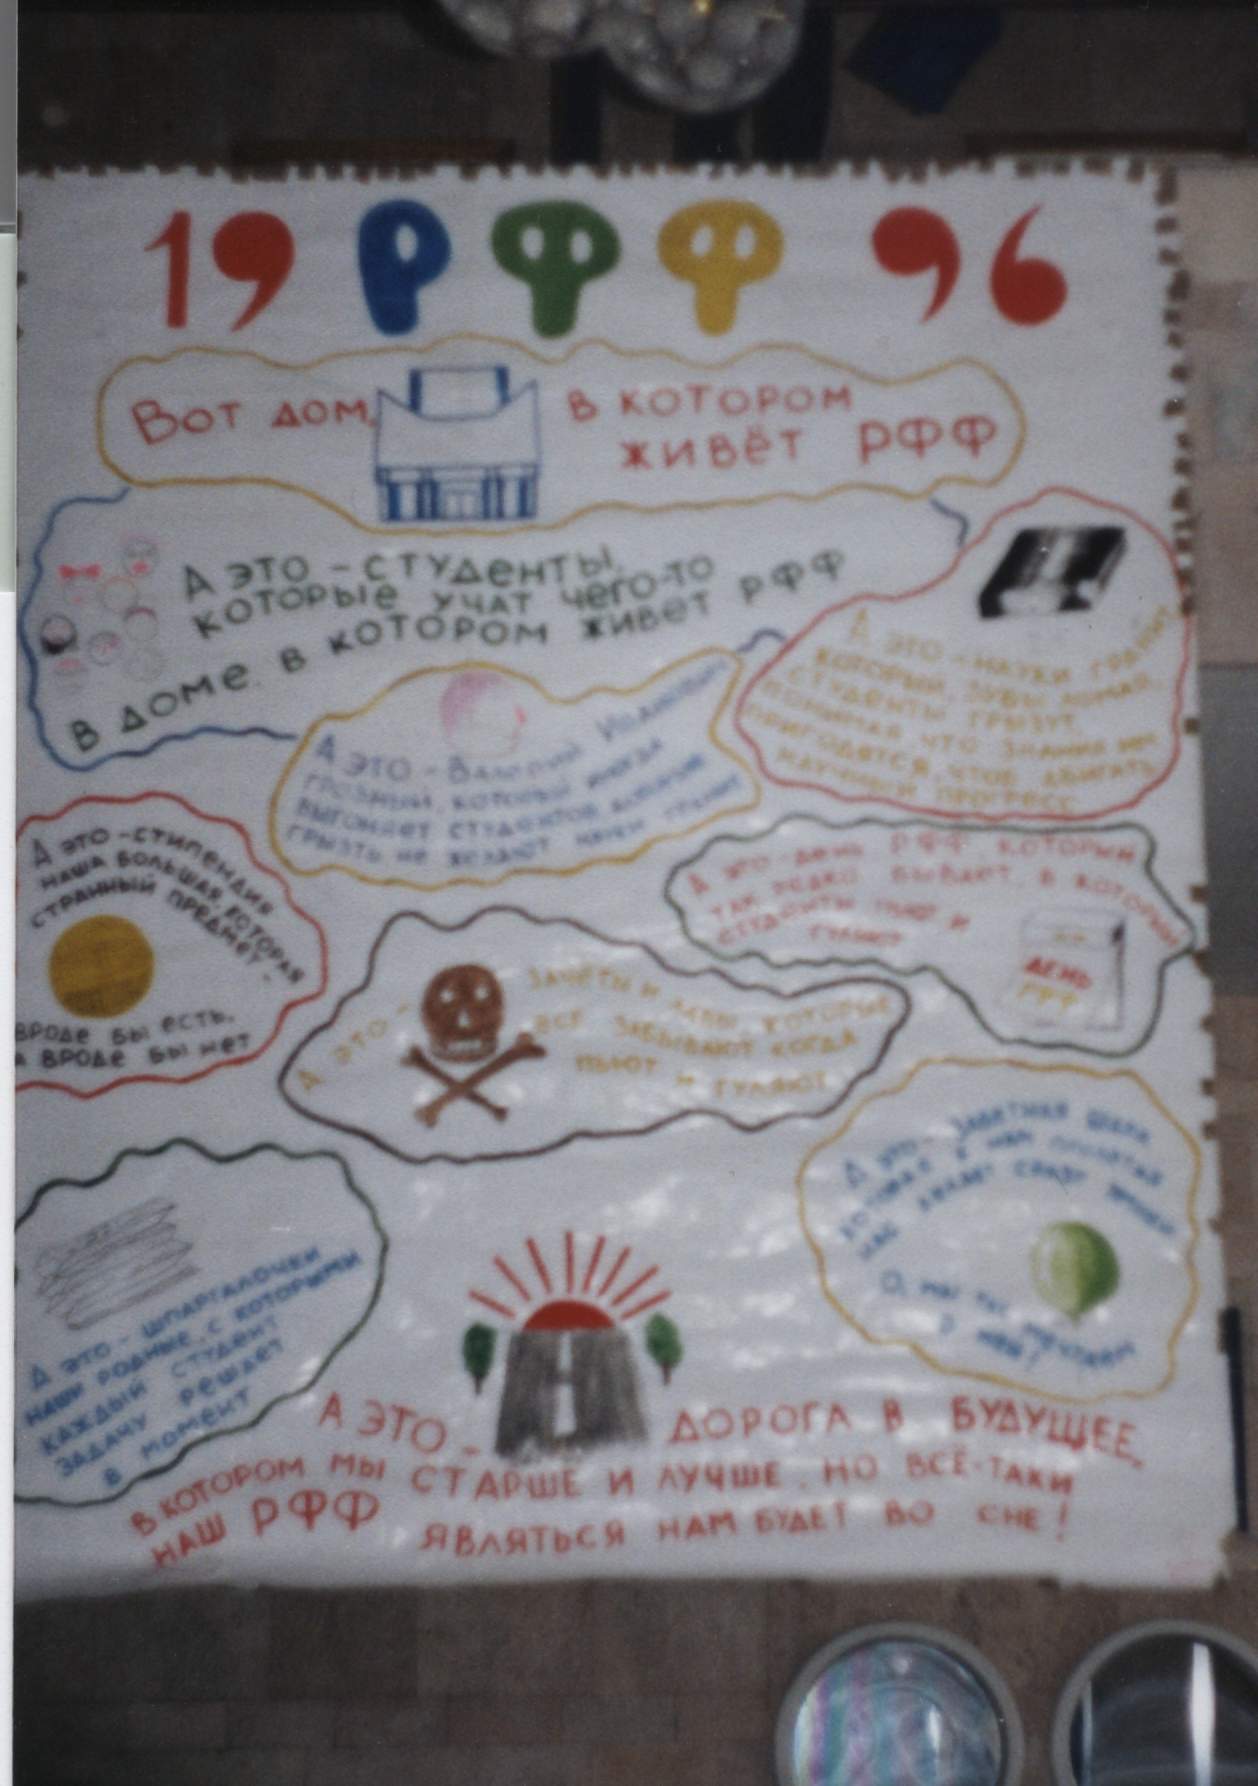 19 РФФ 96
Вот дом, в котором
живёт РФФ
А это - студенты,
которые учат чего-то
в доме, в котором живет РФФ
А это - науки гранит,
который, зубы ломая,
студенты грызут,
понимая, что знания им
пригодятся, чтоб двигать
научный прогресс
А это - Валерий Иванович
грозный, который иногда
выгоняет студентов, которые
грызть не желают науки гранит
А это - стипендия
наша большая, которая
странный предмет -
вроде бы есть,
а вроде бы нет
А это - день РФФ, который
так редко бывает, в который
студенты пьют и
гуляют
ДЕНЬ
РФФ
А это - зачёты и, которые
все забывают когда
пьют и гуляют
А это - шпаргалочки
наши родные, с которыми
каждый студент
задачу решает
в момент
А это
к нам
нас сразу
О, мы
о ней!
А это - дорога в будущее,
в котором мы старше и лучше, но всё-таки
наш РФФ являться нам будет во сне!